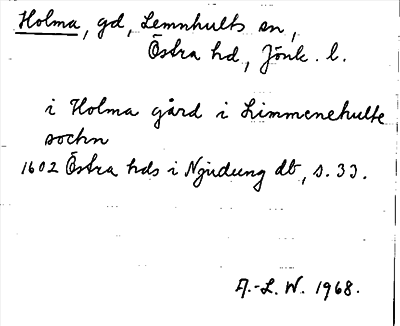 Holma, gd, Lemnhults sn,
Östra hd, Jönk. l.
i Holma gård i Limmenehulte
sochn
1602 Östra hds i Njudung db, s. 33.
A.-L. W. 1968.